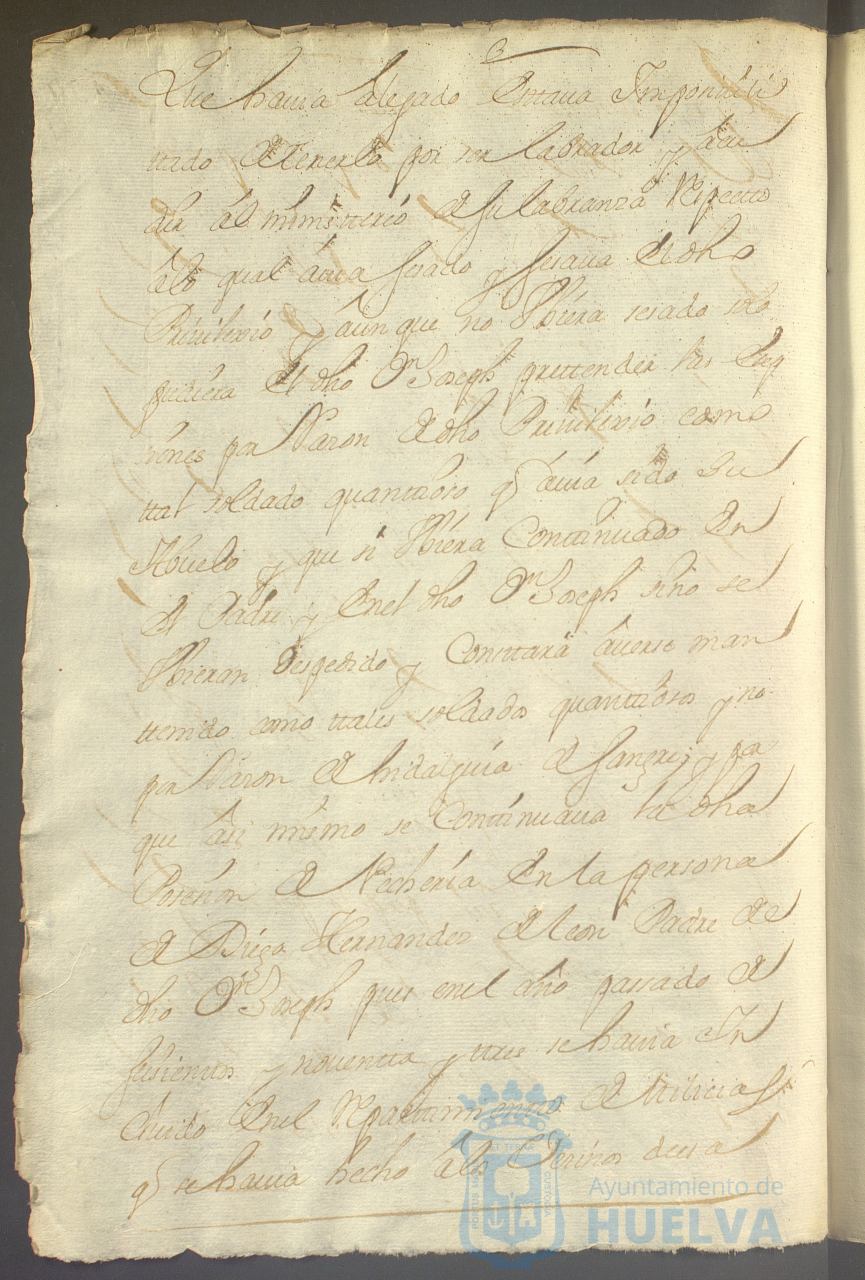 Que havia alegado Estava Imposivili
ttado de tenerlo por ser labrador y acu
dir al ministterio de su labranza Respectto
a lo qual avia sesado y sesava El dho
Privilexio y aunque no Ubiera sesado solo
pudiera El dho Dn Joseph prettender las
siones por Razon de dho Privilexio como
ttal soldado quanttioso q avia sido su
Abuelo y que si Ubiera Conttinuado En
El Padre y En el dho Dn Joseph sino se
Ubieran despedido y Consttara averse man
ttenido como ttales soldados quanttiosos y no
por Razon de hidalguia de sangre y por
que asi mismo se Conttinuava la dha
Posesion de Pecheria En la persona
de Diego Hernandez de leon Padre de
dho Dn Joseph pues en el año passado de
seisientos y noventta y tres se havia In
cluido En el Repartimiento de Milicias
q se havia hecho a los Vecinos de esa
Ayuntamiento de
HUELVA